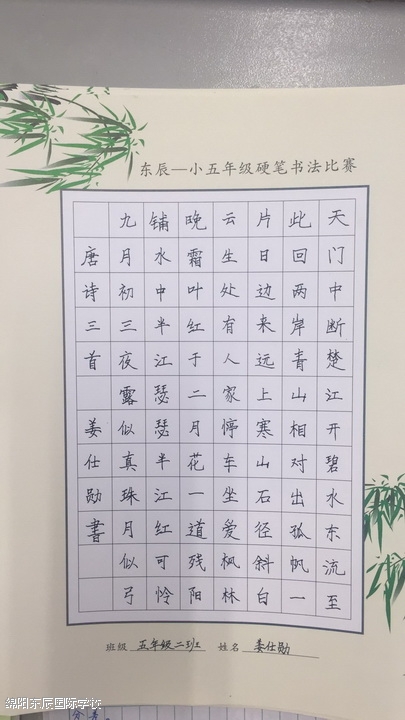 东辰一小五年级硬笔书法比赛
天门中断楚江开碧水东流至
此回两岸青山相对出孤帆一
片日边来远上寒山石径斜白
云生处有人家停车坐爱枫林
晚霜叶红于二月花一道残阳
铺水中半江瑟瑟半江红可怜
九月初三夜露似真珠月似弓
唐诗三首 姜仕勋書
班级 五年级二班 姓名 姜仕勋
绵阳东辰国际学校